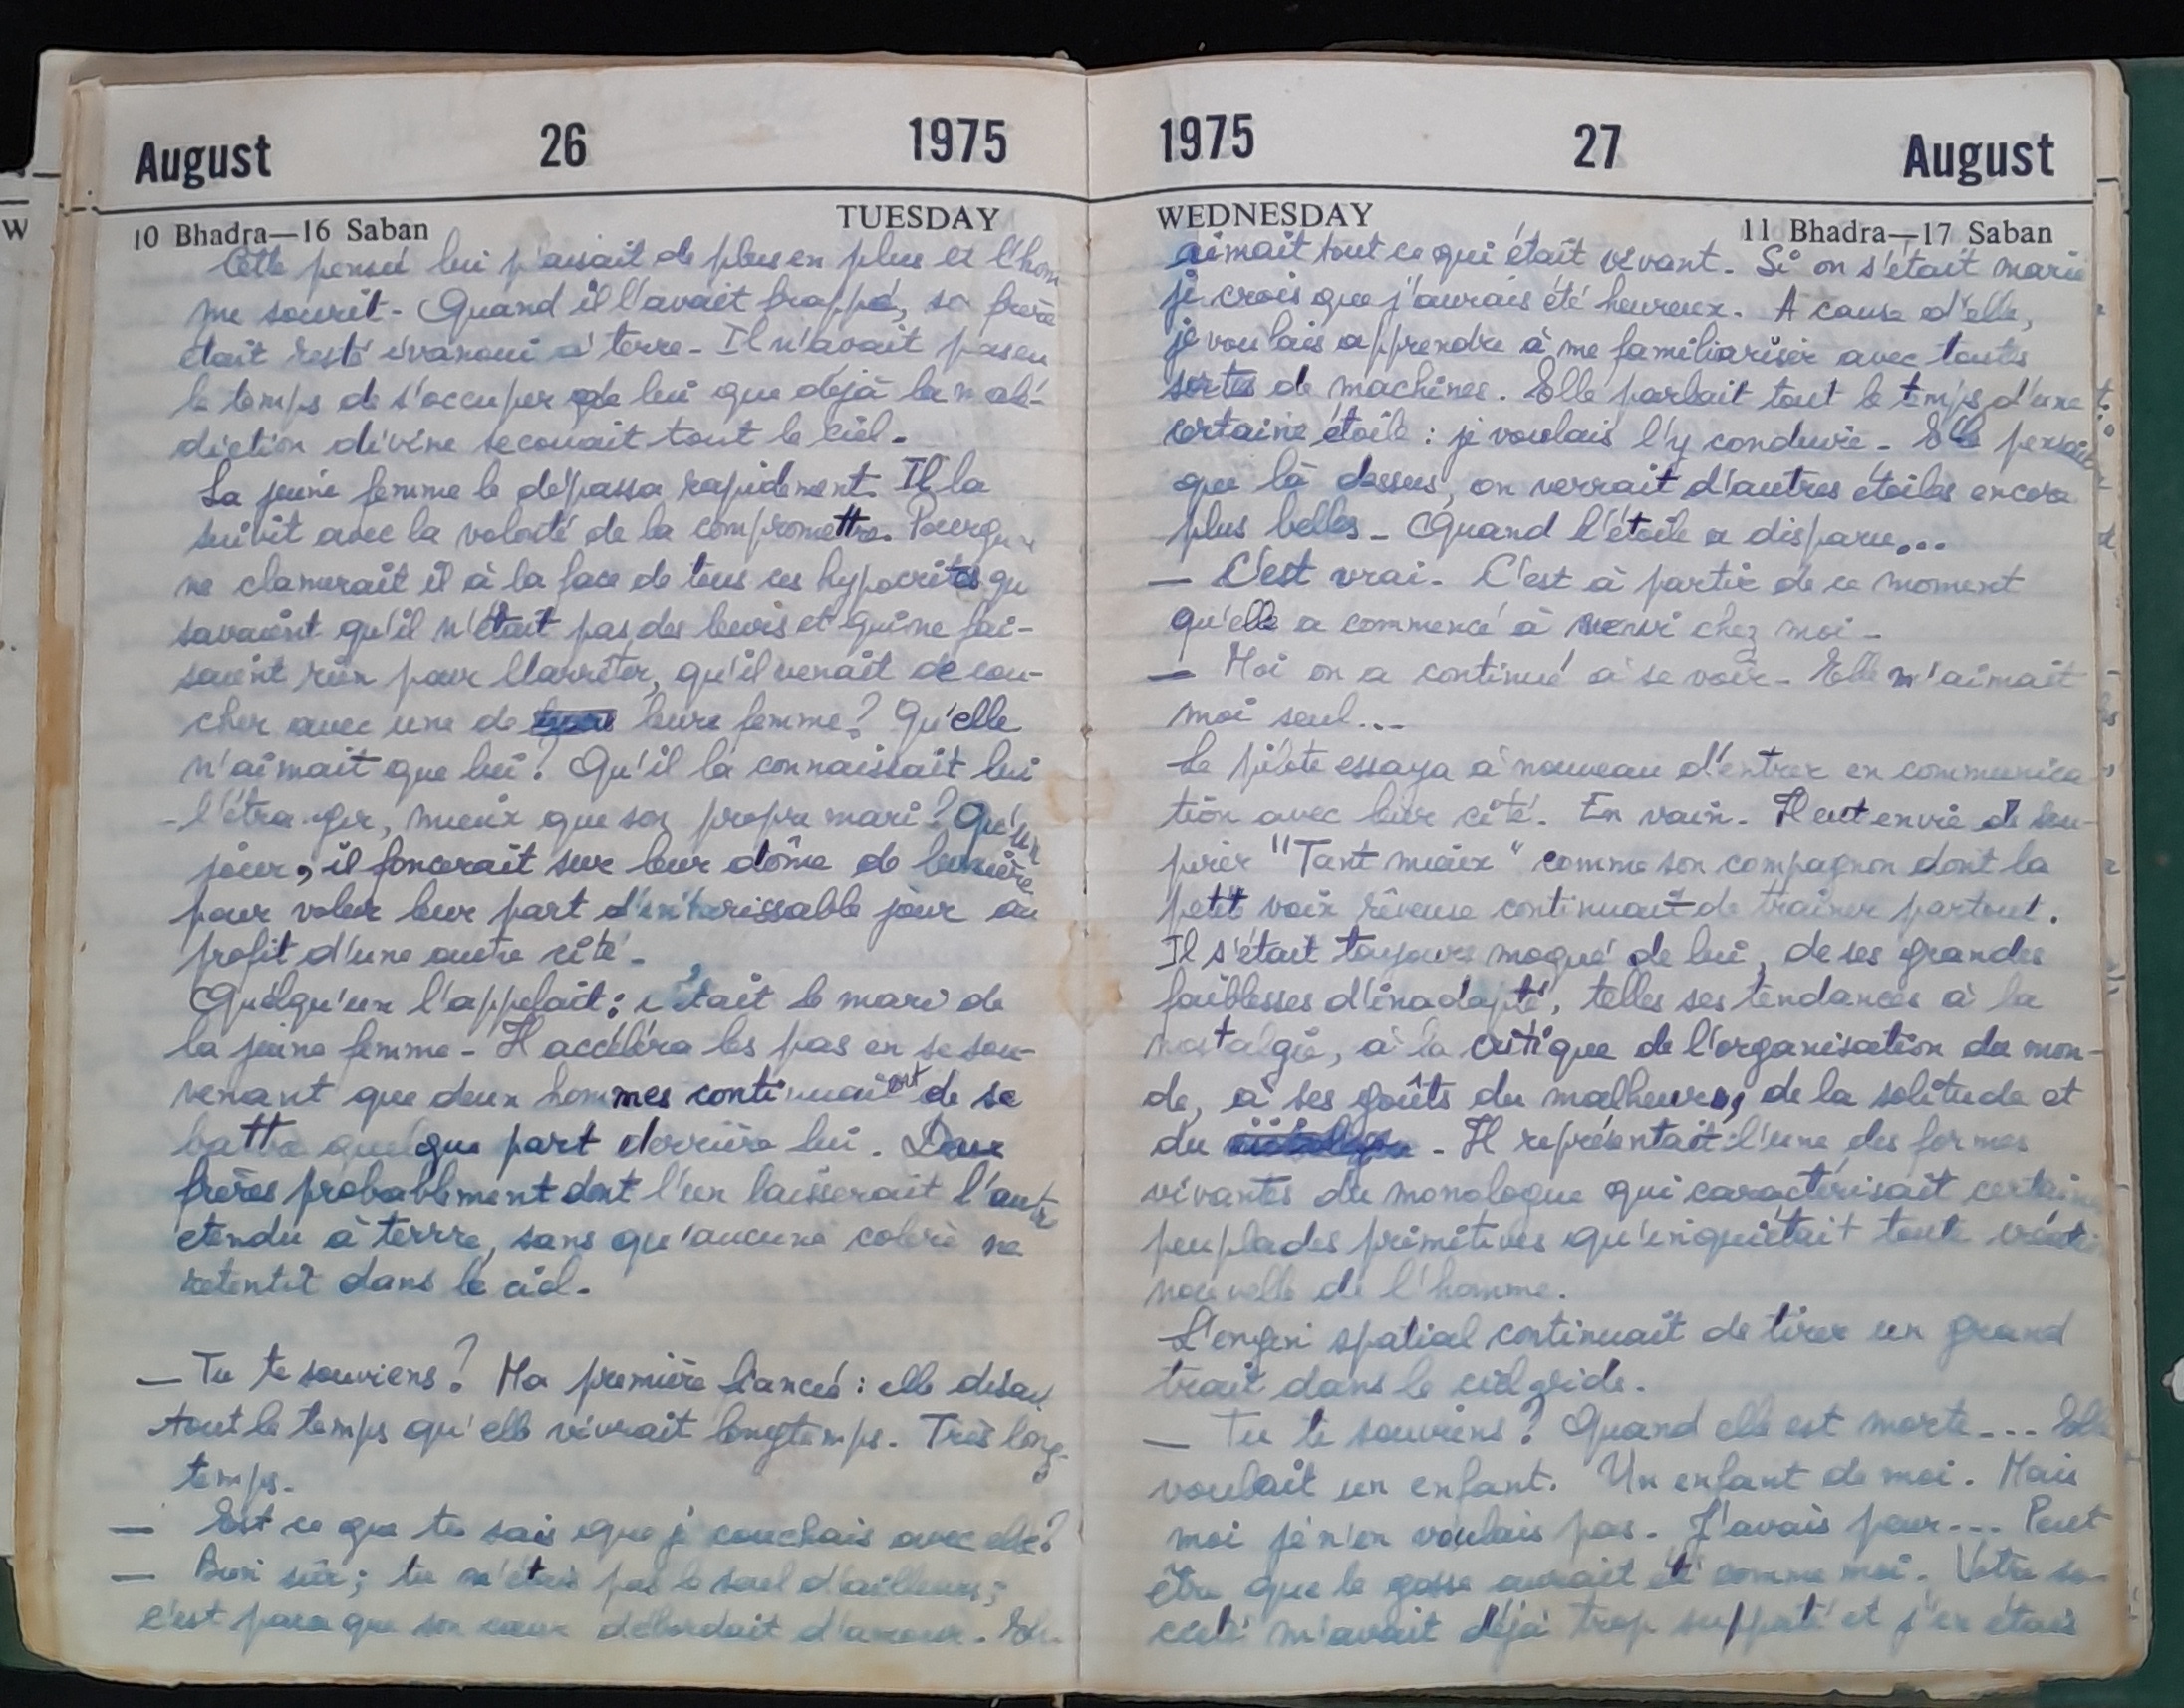 August 26 1975
10 Bhadra—16 Saban TUESDAY
Cette pensée lui plaisait de plus en plus et l'hom
me sourit. Quand il l'avait frappé, so frère
était resté évanoui à terre. Il n'avait pas eu
le temps de s'occuper de lui que déjà la malé-
diction divine secouait tout le ciel.
La jeune femme le dépassa rapidement. Il la
suivit avec la volonté de la compromettre. Pourquoi
ne clamerait il à la face de tous ces hypocrites qu
savaient qu'il n'était pas des leurs et qui ne fai-
saient rien pour l'arrêter, qu'il venait de cou-
cher avec une de leurs femme? Qu'elle
n'aimait que lui? Qu'il la connaissait lui
-l'étranger, mieux que son propre mari? Qu'un
jour, il foncerait sur leur dôme de lumière
pour voler leur part d'intarissable jour au
profit d'une autre cité.
Quelqu'un l'appelait: c'était le mari de
la jeune femme. Il accéléra les pas en se sou-
venant que deux hommes continuaient de se
battre quelque part derrière lui. Deux
frères probablement dont l'un laisserait l'autre
etendu à terrre, sans qu'aucune colère ne
retentit dans le ciel.
— Tu te souviens? Ma première fiancée: elle disait
tout le temps qu'elle vivrait longtemps. Très long-
temps.
— Est ce que tu sais que je couchais avec elle?
— Bien sûr; tu n'étais pas le seul d'ailleurs;
c'est parce que son cœur débordait d'amour. Elle
1975 27 August
WEDNESDAY 11 Bhadra—17 Saban
aimait tout ce qui était vivant. Si on s'était marié
je crois que j'aurais été heureux. A cause d'elle,
je voulais apprendre à me familiariser avec toutes
sortes de machines. Elle parlait tout le temps d'une
certaine étoile: je voulais l'y conduire. Elle pensait
que là dessus, on verrait d'autres étoiles encore
plus belles. Quand l'étoile a disparu...
— C'est vrai. C'est à partir de ce moment
qu'elle a commencé à venir chez moi.
— Moi on a continué à se voir. Elle m'aimait
moi seul...
Le pilote essaya à nouveau d'entrer en communica
tion avec leur cité. En vain. Il eut envie de sou-
pirer "Tant mieux" comme son compagnon dont la
petit voix rêveuse continuait de traîner partout.
Il s'était toujours moqué de lui, de ses grandes
faiblesses d'inadapté, telles ses tendances à la
nostalgie, à la critique de l'organisation du mon-
de, à ses goûts du malheurs, de la solitude et
du . Il représentait l'une des formes
vivantes du monologue qui caractérisait certaines
peuplades primitives qu'inquiétait toute
nouvelle de l'homme.
L'engin spatial continuait de tirer un grand
trait dans le ciel vide.
— Tu te souviens? Quand elle est morte... Elle
voulait un enfant. Un enfant de moi. Mais
moi je n'en voulais pas. J'avais peur... Peut
être que le gosse aurait été comme moi. Votre so-
ciété m'avait déjà trop supporté et j'en étais